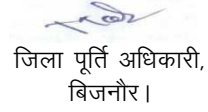 जिला पूर्ति अधिकारी,
बिजनौर।